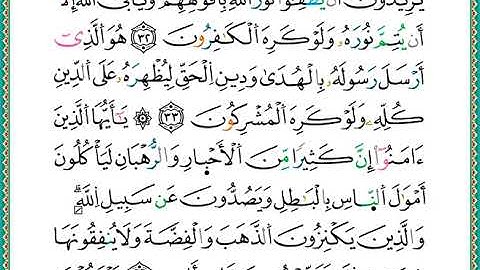 يُرِيدُونَ أَن يُطْفِـُٔوا۟ نُورَ ٱللَّهِ بِأَفْوَٰهِهِمْ وَيَأْبَى ٱللَّهُ إِلَّآ
أَن يُتِمَّ نُورَهُۥ وَلَوْ كَرِهَ ٱلْكَـٰفِرُونَ ٣٢ هُوَ ٱلَّذِىٓ
أَرْسَلَ رَسُولَهُۥ بِٱلْهُدَىٰ وَدِينِ ٱلْحَقِّ لِيُظْهِرَهُۥ عَلَى ٱلدِّينِ
كُلِّهِۦ وَلَوْ كَرِهَ ٱلْمُشْرِكُونَ ٣٣ ۞ يَـٰٓأَيُّهَا ٱلَّذِينَ
ءَامَنُوٓا۟ إِنَّ كَثِيرًا مِّنَ ٱلْأَحْبَارِ وَٱلرُّهْبَانِ لَيَأْكُلُونَ
أَمْوَٰلَ ٱلنَّاسِ بِٱلْبَـٰطِلِ وَيَصُدُّونَ عَن سَبِيلِ ٱللَّهِ ۗ
وَٱلَّذِينَ يَكْنِزُونَ ٱلذَّهَبَ وَٱلْفِضَّةَ وَلَا يُنفِقُونَهَا